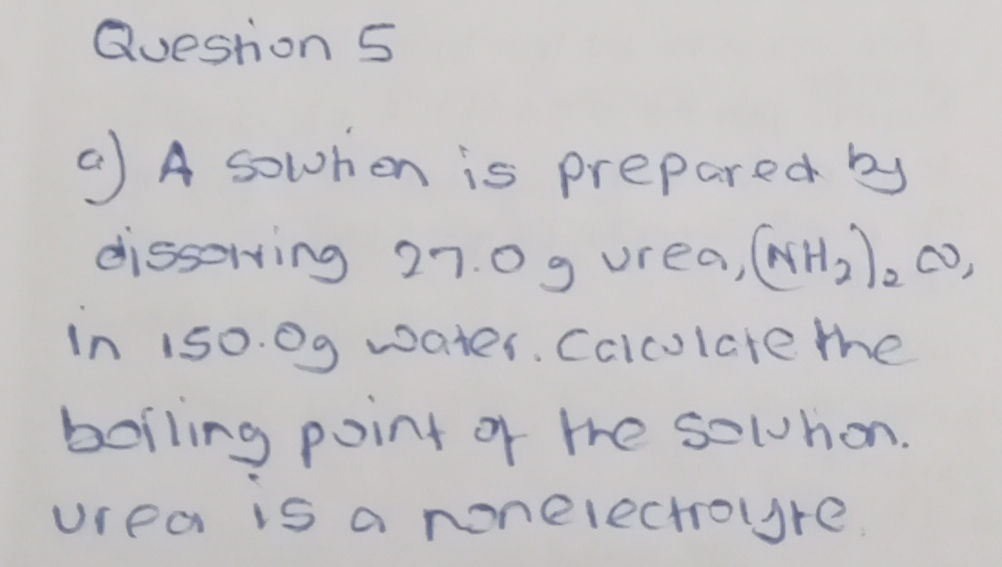 Question 5
a) A solution is prepared by
dissolving 27.0 g urea, (NH₂)₂ CO,
in 150.0g water. Calculate the
boiling point of the solution.
urea is a nonelectrolyte.